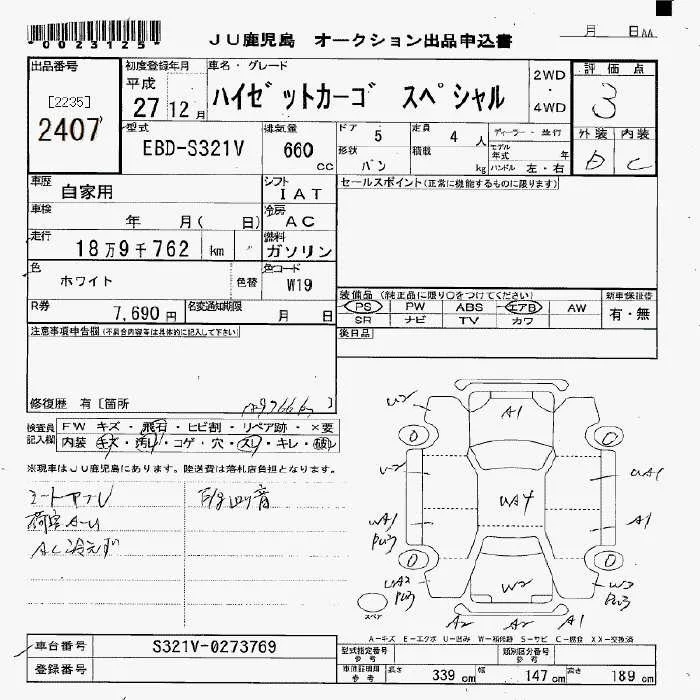 -0023125-
JU鹿児島 オークション出品申込書
月 日AA
出品番号
[2235]
2407
初度登録年月
平成
27 12月
車名・グレード
ハイゼットカーゴ スペシャル
2WD
・
4WD
評価点
3
外装 内装
D C
型式
EBD-S321V
排気量
660
cc
ドア 5
定員 4 人
形状 バン
積載 kg
ディーラー・並行
モデル年式 年
ハンドル 左・右
車歴
自家用
シフト
IAT
セールスポイント(正常に機能するものに限ります)
車検
年 月( 日)
冷房
AC
走行
18万9千762 km
燃料
ガソリン
色
ホワイト
色替
色コード
W19
R券
7,690円
名変通知期限
月 日
装備品(純正品に限り○をつけてください)
PS PW ABS エアB AW
SR ナビ TV カワ
新車保証書
有・無
後日品
注意事項申告欄(不具合内容等は具体的に記入して下さい)
修復歴 有[箇所 ]
検査員記入欄
FW キズ・飛石・ヒビ割・リペア跡・×要
内装 キズ・汚れ・コゲ・穴・スレ・キレ・破レ
※現車はJU鹿児島にあります。陸送費は落札店負担となります。
シートアブレ
荷室A-U
AC冷えず
U2
A1
UA1
A1
UA4
UA2
W2
W3
A2 A2 A1
スペア
A-キズ E-エクボ U-凹み W-補修跡 S-サビ C-腐食 XX-交換済
車台番号
S321V-0273769
登録番号
型式指定番号
参考
類別区分番号
参考
車両証明用
参考
長さ 339 cm 幅 147 cm 高さ 189 cm